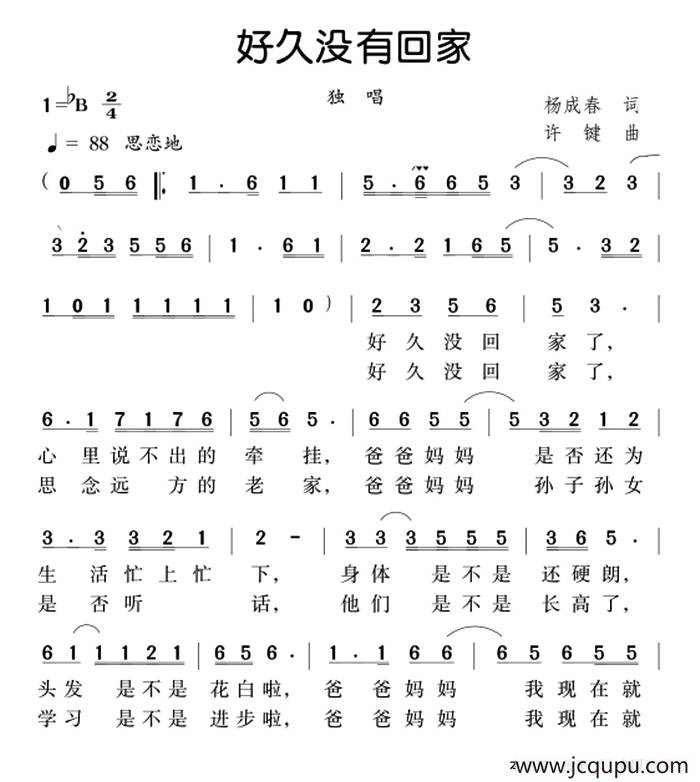 好久没有回家
1=♭B 2/4
独 唱
杨成春 词
许 键 曲
♩= 88 思恋地
( 0 5 6 ‖: 1 . 6 1 1 | 5 . 6 6 6 5 3 | 3 2 3
3 2 3 5 5 6 | 1 . 6 1 | 2 . 2 1 6 5 | 5 . 3 2
1 0 1 1 1 1 1 | 1 0 ) | 2 3 5 6 | 5 3 . |
好 久 没 回 家 了,
好 久 没 回 家 了,
6 . 1 7 1 7 6 | 5 6 5 . | 6 6 5 5 | 5 3 2 1 2
心 里 说 不 出 的 牵 挂, 爸 爸 妈 妈 是 否 还 为
思 念 远 方 的 老 家, 爸 爸 妈 妈 孙 子 孙 女
3 . 3 3 2 1 | 2 - | 3 3 3 5 5 5 | 3 6 5 . |
生 活 忙 上 忙 下, 身 体 是 不 是 还 硬 朗,
是 否 听 话, 他 们 是 不 是 长 高 了,
6 1 1 1 2 1 | 6 5 6 . | 1 . 6 6 6 | 6 5 6 5 5
头 发 是 不 是 花 白 啦, 爸 爸 妈 妈 我 现 在 就
学 习 是 不 是 进 步 啦, 爸 爸 妈 妈 我 现 在 就
www.jcqupu.com